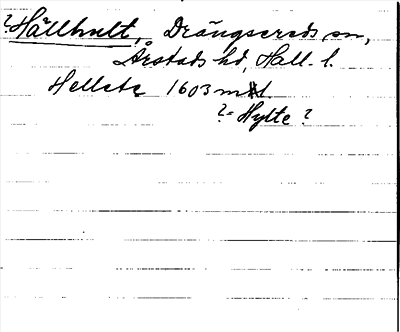 ? Hällhult, Drängsereds sn,
Årstads hd, Hall. l.
Hellete 1603 mtl.
? = Hylte ?